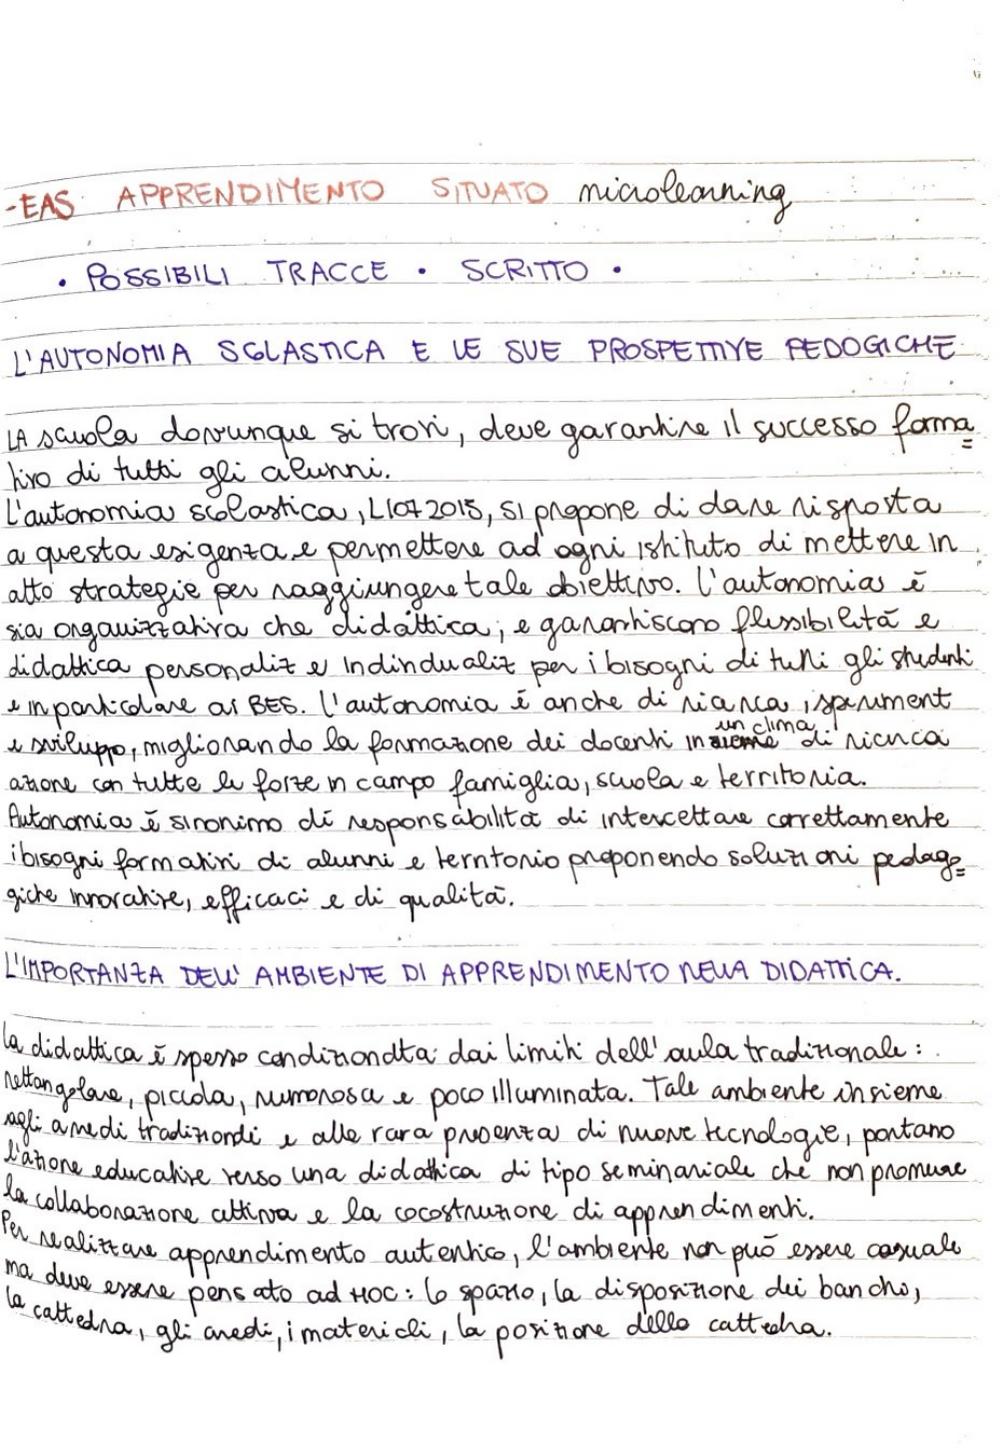 -EAS APPRENDIMENTO SITUATO microlearning
• POSSIBILI TRACCE • SCRITTO •
L'AUTONOMIA SCOLASTICA E LE SUE PROSPETTIVE PEDOGICHE
LA scuola dovunque si trovi, deve garantire il successo forma=
tivo di tutti gli alunni.
L'autonomia scolastica, L107 2015, si propone di dare risposta
a questa esigenza e permettere ad ogni istituto di mettere in
atto strategie per raggiungere tale obiettivo. L'autonomia è
sia organizzativa che didattica, e garantiscono flessibilità e
didattica personaliz e indindualiz per i bisogni di tutti gli studenti
e in particolare ai BES. L'autonomia è anche di ricerca, speriment
e sviluppo, migliorando la formazione dei docenti in un clima di ricerca
azione con tutte le forze in campo famiglia, scuola e territorio.
Autonomia è sinonimo di responsabilità di intercettare correttamente
i bisogni formativi di alunni e territorio proponendo soluzioni pedago=
giche innovative, efficaci e di qualità.
L'IMPORTANZA DELL' AMBIENTE DI APPRENDIMENTO NELLA DIDATTICA.
La didattica è spesso condizionata dai limiti dell'aula tradizionale:
rettangolare, piccola, numerosa e poco illuminata. Tale ambiente insieme
agli arredi tradizionali e alla rara presenza di nuove tecnologie, portano
l'azione educative verso una didattica di tipo seminariale che non promuove
la collaborazione attiva e la cocostruzione di apprendimenti.
Per realizzare apprendimento autentico, l'ambiente non può essere casuale
ma deve essere pensato ad HOC: lo spazio, la disposizione dei banchi,
la cattedra, gli arredi, i materiali, la posizione della cattedra.